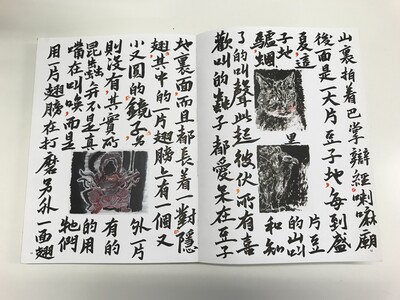 山裏拍着巴掌辯經喇嘛廟
後面是一大片豆子地,每到盛
夏,這片豆
子地里的山叫
驢,蟈和知
了的叫聲此起彼伏,所有喜
歡叫的蟲子都愛呆在豆子
地裏面而且都長着一對隱
翅,其中的一片翅膀上有一個又
小又圓的鏡子,另外一片
則沒有,其實,所有的
昆蟲并不是真的用
嘴在叫喚,而是牠們
用一片翅膀在打磨另外一面翅